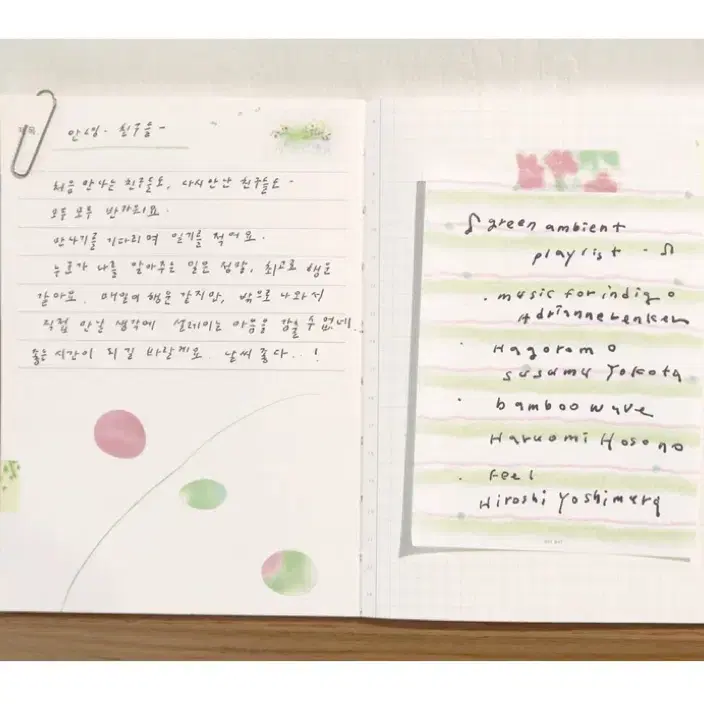 제목
안녕. 친구들 -
처음 만나는 친구들도, 다시 만난 친구들도 -
모두 모두 반가워요.
만나기를 기다리며 일기를 적어요.
누군가 나를 알아주는 일은 정말, 최고로 행운
같아요. 매일이 행운 같지만, 밖으로 나와서
직접 만날 생각에 설레이는 마음을 감출 수 없네!
좋은 시간이 되길 바랄게요. 날씨 좋다..!
green ambient
playlist - ♫
· music for indigo
Adrianne Lenker
· Hagoromo
susumu Yokota
· bamboo wave
Haruomi Hosono
· Feel
Hiroshi Yoshimura